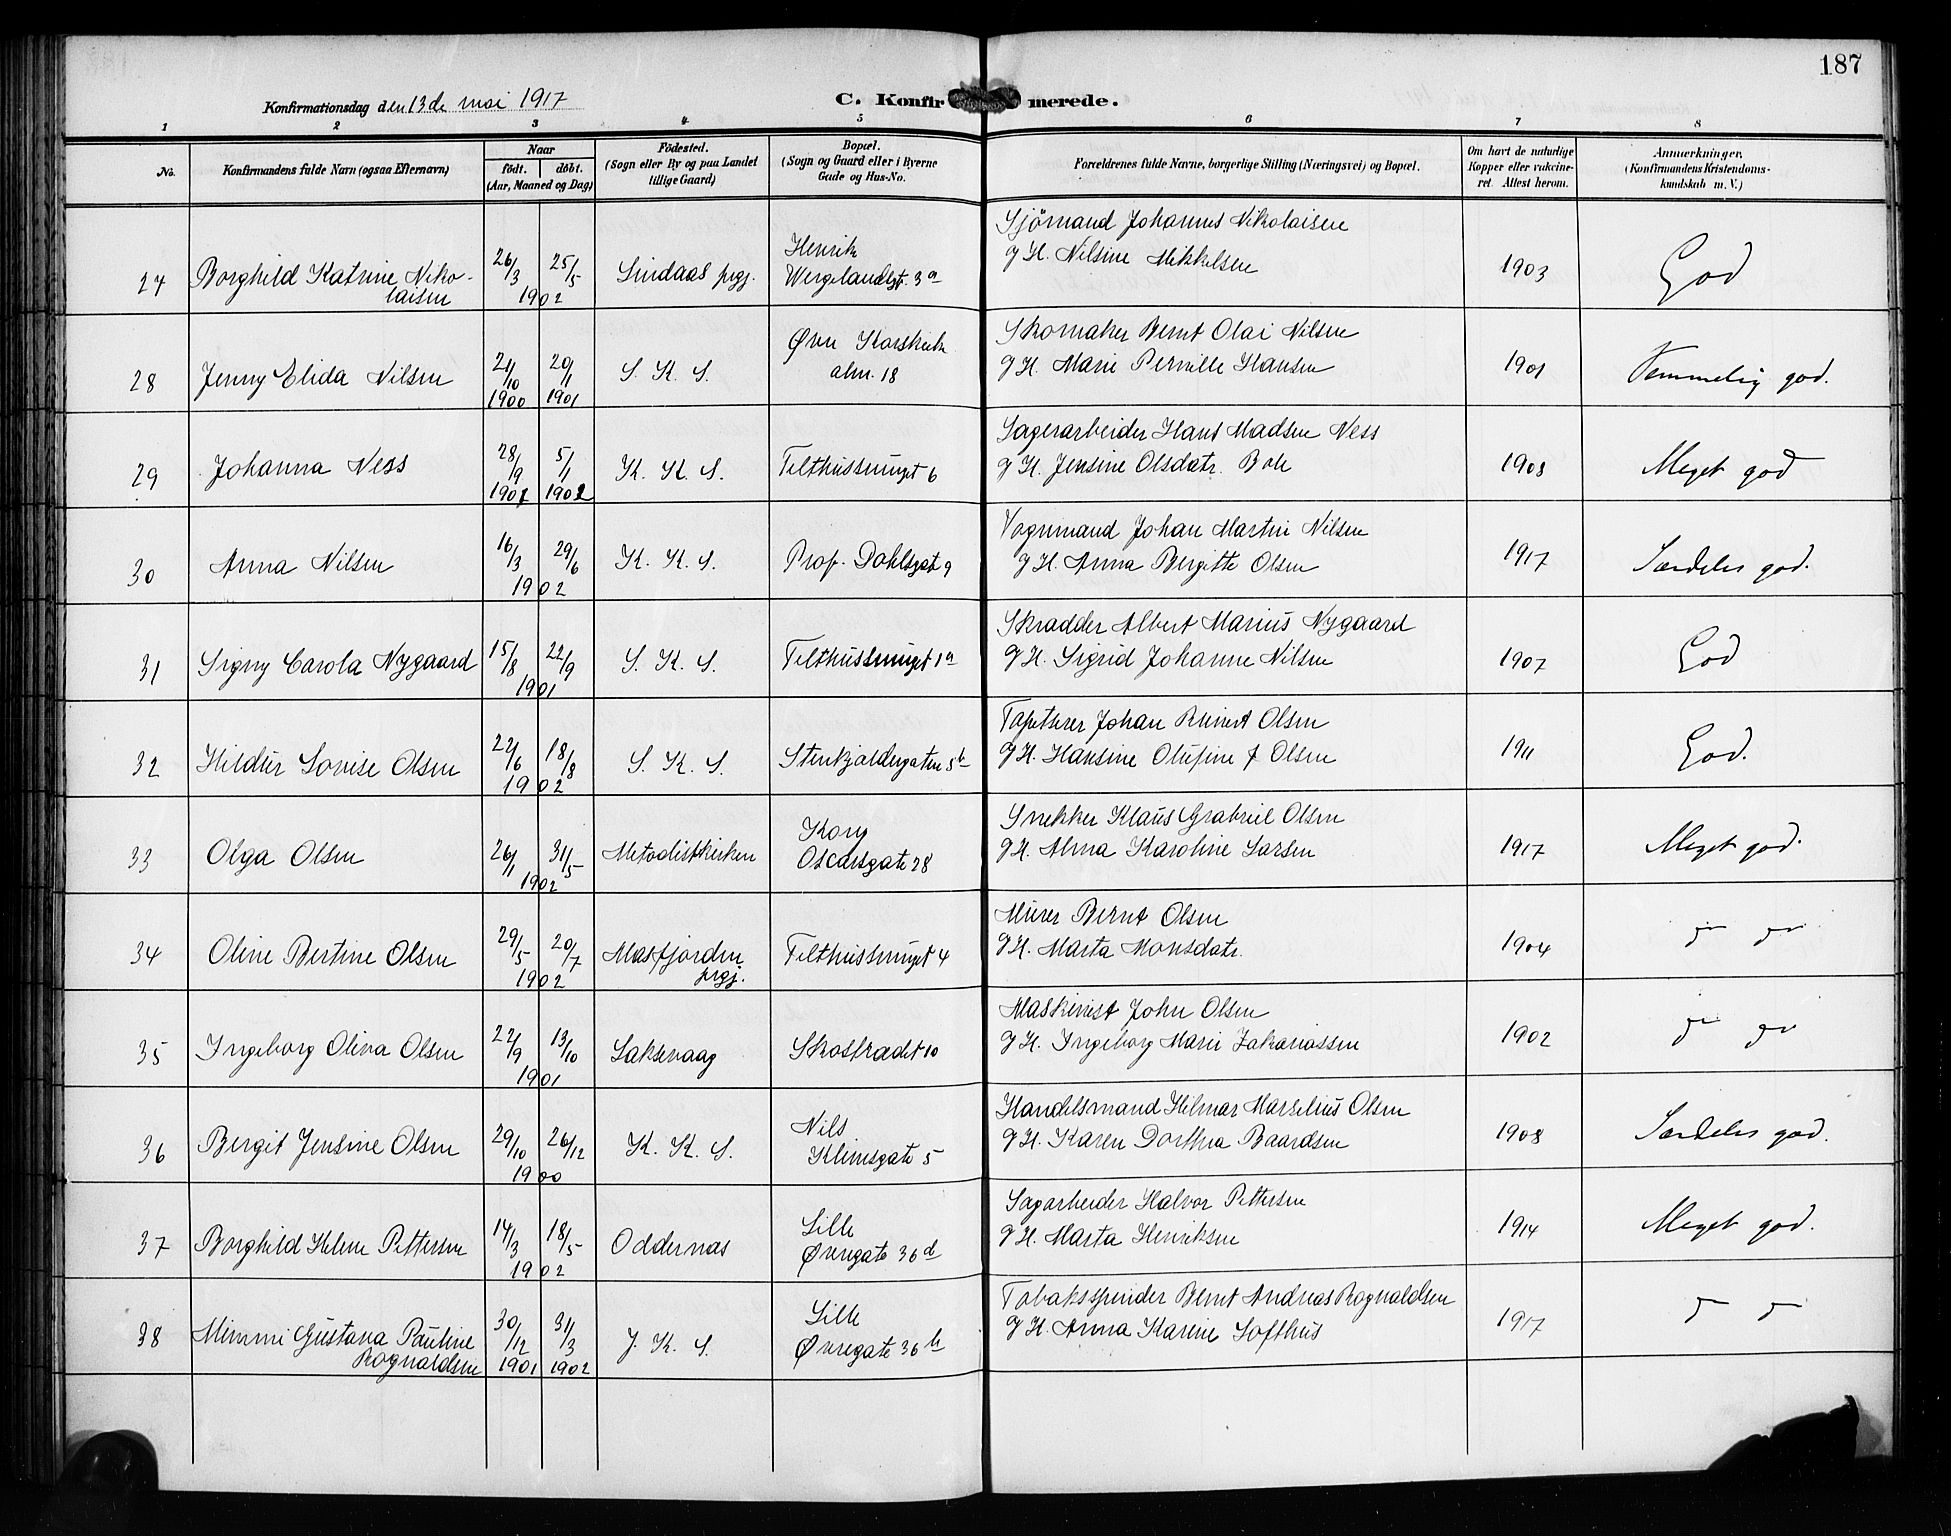 187
Konfirmationsdag den 13de mai 1917
C. Konfirmerede.
1 2 3 4 5 6 7 8
No.
Konfirmandens fulde Navn (ogsaa Efternavn)
Naar
födt. döbt.
(Aar, Maaned og Dag)
Födested.
(Sogn eller By og paa Landet
tillige Gaard)
Bopæl.
(Sogn og Gaard eller i Byerne
Gade og Hus-No.
Forældrenes fulde Navne, borgerlige Stilling (Næringsvei) og Bopæl.
Om havt de naturlige
Kopper eller vakcine-
ret. Attest herom.
Anmærkninger,
(Konfirmandens Kristendoms-
kundskab m. V.)
27 Borghild Katrine Niko-
laisen
26/3 25/5
1902
Lindaas prgj.
Henrik
Wergelandsgt. 3a
Sjömand Johannes Nikolaisen
g H. Nilsine Mikkelsen
1903
God
28 Jenny Elida Nilsen
21/10 20/1
1900 1901
S. K. S.
Øvre Korskirke
alm. 18
Skomaker Bernt Olai Nilsen
g H. Marie Pernille Hansen
1901
Temmelig god.
29 Johanna Ness
28/9 5/1
1901 1902
K. K. S.
Telthussmuget 6
Lagerarbeider Hans Madsen Ness
g H. Jensine Olsdatr. Bole
1903
Meget god
30 Anna Nilsen
16/3 29/6
1902
K. K. S.
Prof. Dahlsgate 9
Vognmand Johan Martin Nilsen
g H. Anna Bergitte Olsen
1917
Særdeles god.
31 Signy Carola Nygaard
15/8 22/9
1901
S. K. S.
Telthussmuget 1a
Skrædder Albert Marius Nygaard
g H. Sigrid Johanne Nilsen
1907
God
32 Hildur Lovise Olsen
22/6 18/8
1902
S. K. S.
Stenkjeldergaten 5b
Tapetserer Johan Reinert Olsen
g H. Hansine Olufine f Olsen
1911
God.
33 Olga Olsen
26/1 31/5
1902
Metodistkirken
Kong
Oscarsgate 28
Snekker Klaus Grabriel Olsen
g H. Alma Karoline Larsen
1917
Meget god.
34 Oline Bertine Olsen
29/5 20/7
1902
Masfjorden
prgj.
Telthussmuget 4
Murer Bernt Olsen
g H. Marta Monsdatr.
1904
do do
35 Ingeborg Oliva Olsen
22/9 13/10
1901
Laksevaag
Skostrædet 10
Maskinist John Olsen
g H. Ingeborg Marie Zakariassen
1902
do do
36 Bergit Jensine Olsen
29/10 26/12
1900
K. K. S.
Nils
Klimsgate 5
Handelsmand Hilmar Marselius Olsen
g H. Karen Dorthea Baardsen
1908
Særdeles god.
37 Borghild Helene Pettersen
14/3 18/5
1902
Oddernæs
Lille
Øvregate 36d
Sagarbeider Halvor Pettersen
g H. Marta Henriksen
1914
Meget god.
38 Mimmi Gustava Pauline
Rognaldsen
30/12 31/3
1901 1902
J. K. S.
Lille
Øvregate 36b
Tobaksspinder Bernt Andreas Rognaldsen
g H. Anna Karine Lofthus
1917
do do